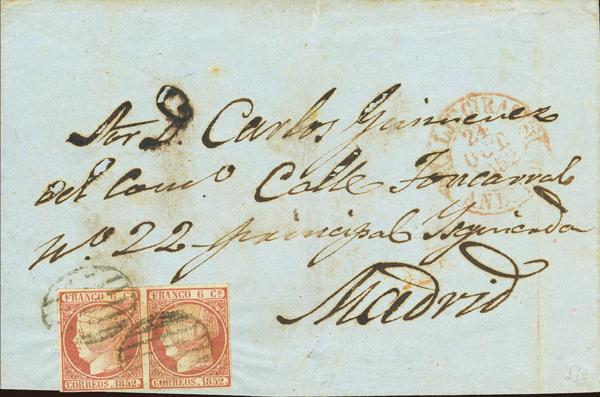 ALGECIRAS
24
OCT
Sor D. Carlos Gimenez
del Comº Calle Foncarral
nº 22 principal Izquierda
Madrid
FRANCO 6 Cs
CORREOS. 1852.
FRANCO 6 Cs
CORREOS. 1852.